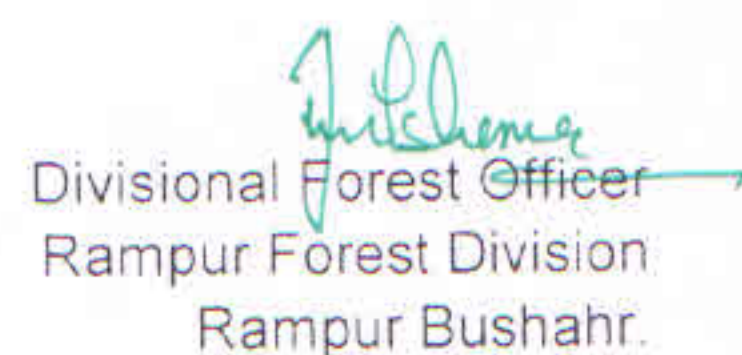 Divisional Forest Officer
Rampur Forest Division
Rampur Bushahr.